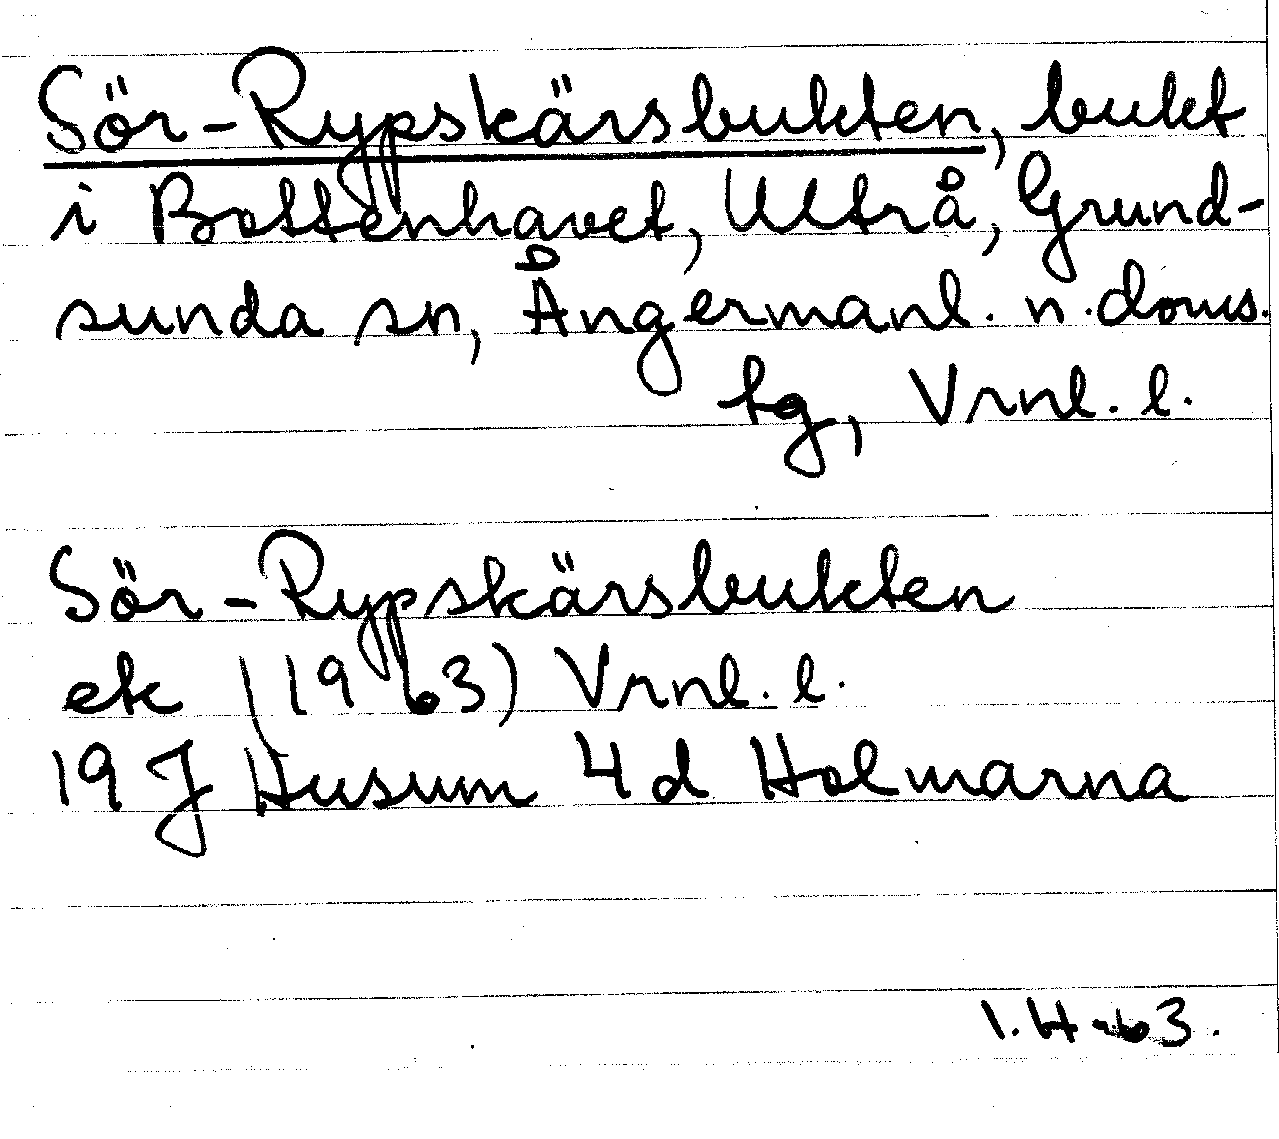 Sör-Rypskärsbukten, bukt
i Bottenhavet, Ultrå, Grund-
sunda sn, Ångermanl. n. doms.
tg, Vrnl. l.
Sör-Rypskärsbukten
ek (1963) Vrnl. l.
19 J Husum 4d Holmarna
I. H-63.